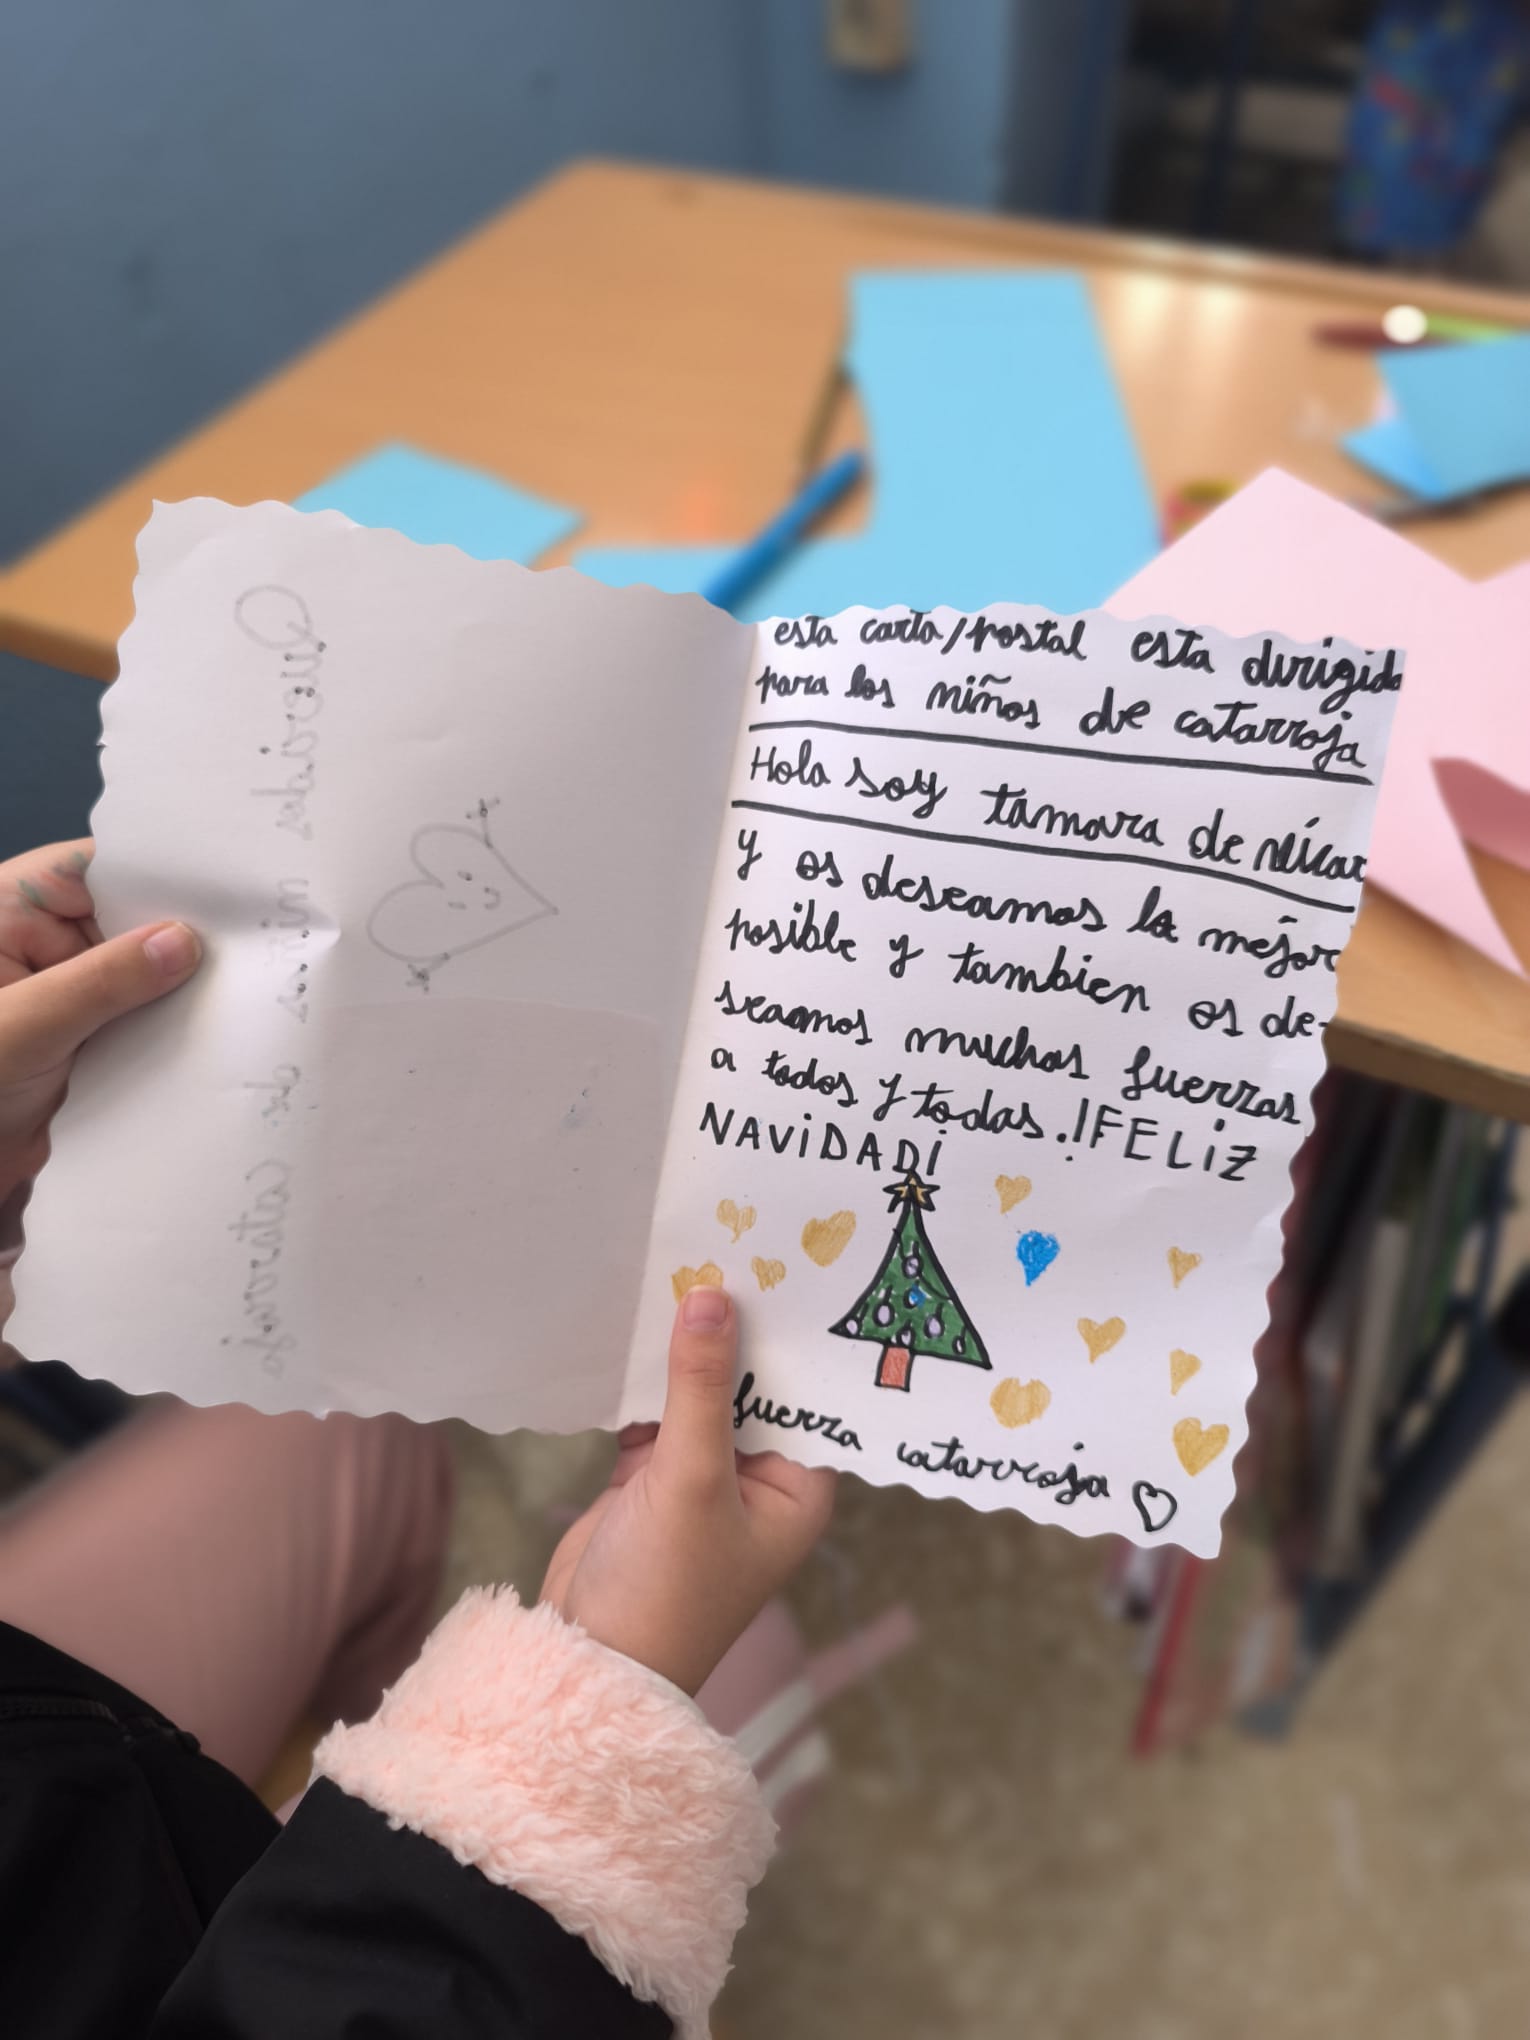 esta carta/postal esta dirigida
para los niños de catarroja
Hola soy tamara de nícar
y os deseamos la mejor
posible y tambien os de-
seamos muchas fuerzas
a todos y todas.!FELiZ
NAViDAD¡
fuerza catarroja
Queridos niños de catarroja